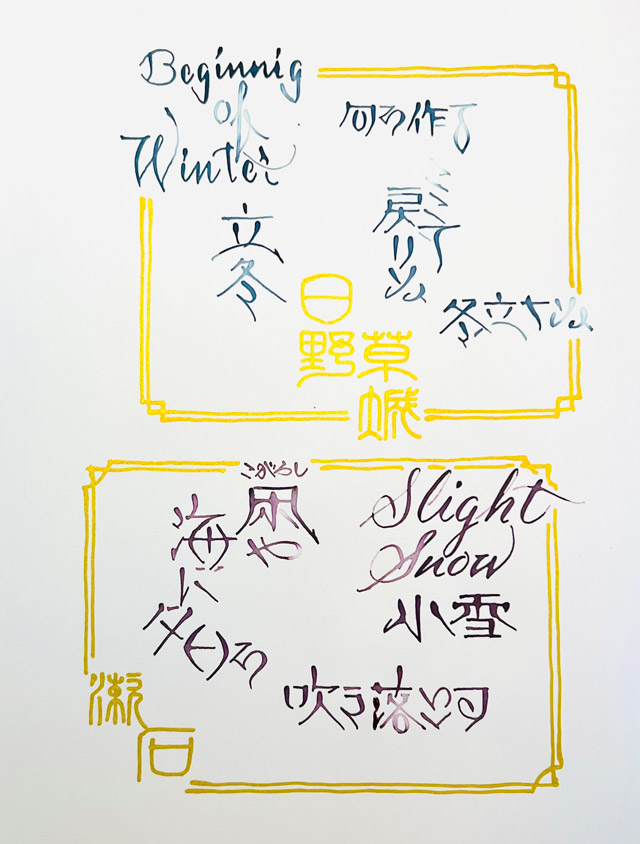 Beginnig
of
Winter
立冬
句を作る
戻りぬ
冬立ちぬ
日野草城
Slight
Snow
小雪
こがらし
凩や
海に
夕日を
吹き落す
漱石